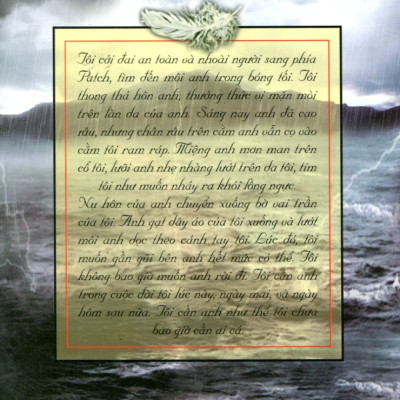 Tôi cởi đai an toàn và nhoài người sang phía
Patch, tìm đến môi anh trong bóng tối. Tôi
thong thả hôn anh, thưởng thức vị mặn mòi
trên làn da của anh. Sáng nay anh đã cạo
râu, nhưng chân râu trên cằm anh vẫn cọ vào
cằm tôi ram ráp. Miệng anh mơn man trên
cổ tôi, lưỡi anh nhẹ nhàng lướt trên da tôi, tim
tôi như muốn nhảy ra khỏi lồng ngực.
Nụ hôn của anh chuyển xuống bờ vai trần
của tôi. Anh gạt dây áo của tôi xuống và lướt
môi anh dọc theo cánh tay tôi. Lúc đó, tôi
muốn gần gũi bên anh hết mức có thể. Tôi
không bao giờ muốn anh rời đi. Tôi cần anh
trong cuộc đời tôi lúc này, ngày mai, và ngày
hôm sau nữa. Tôi cần anh như thể tôi chưa
bao giờ cần ai cả.